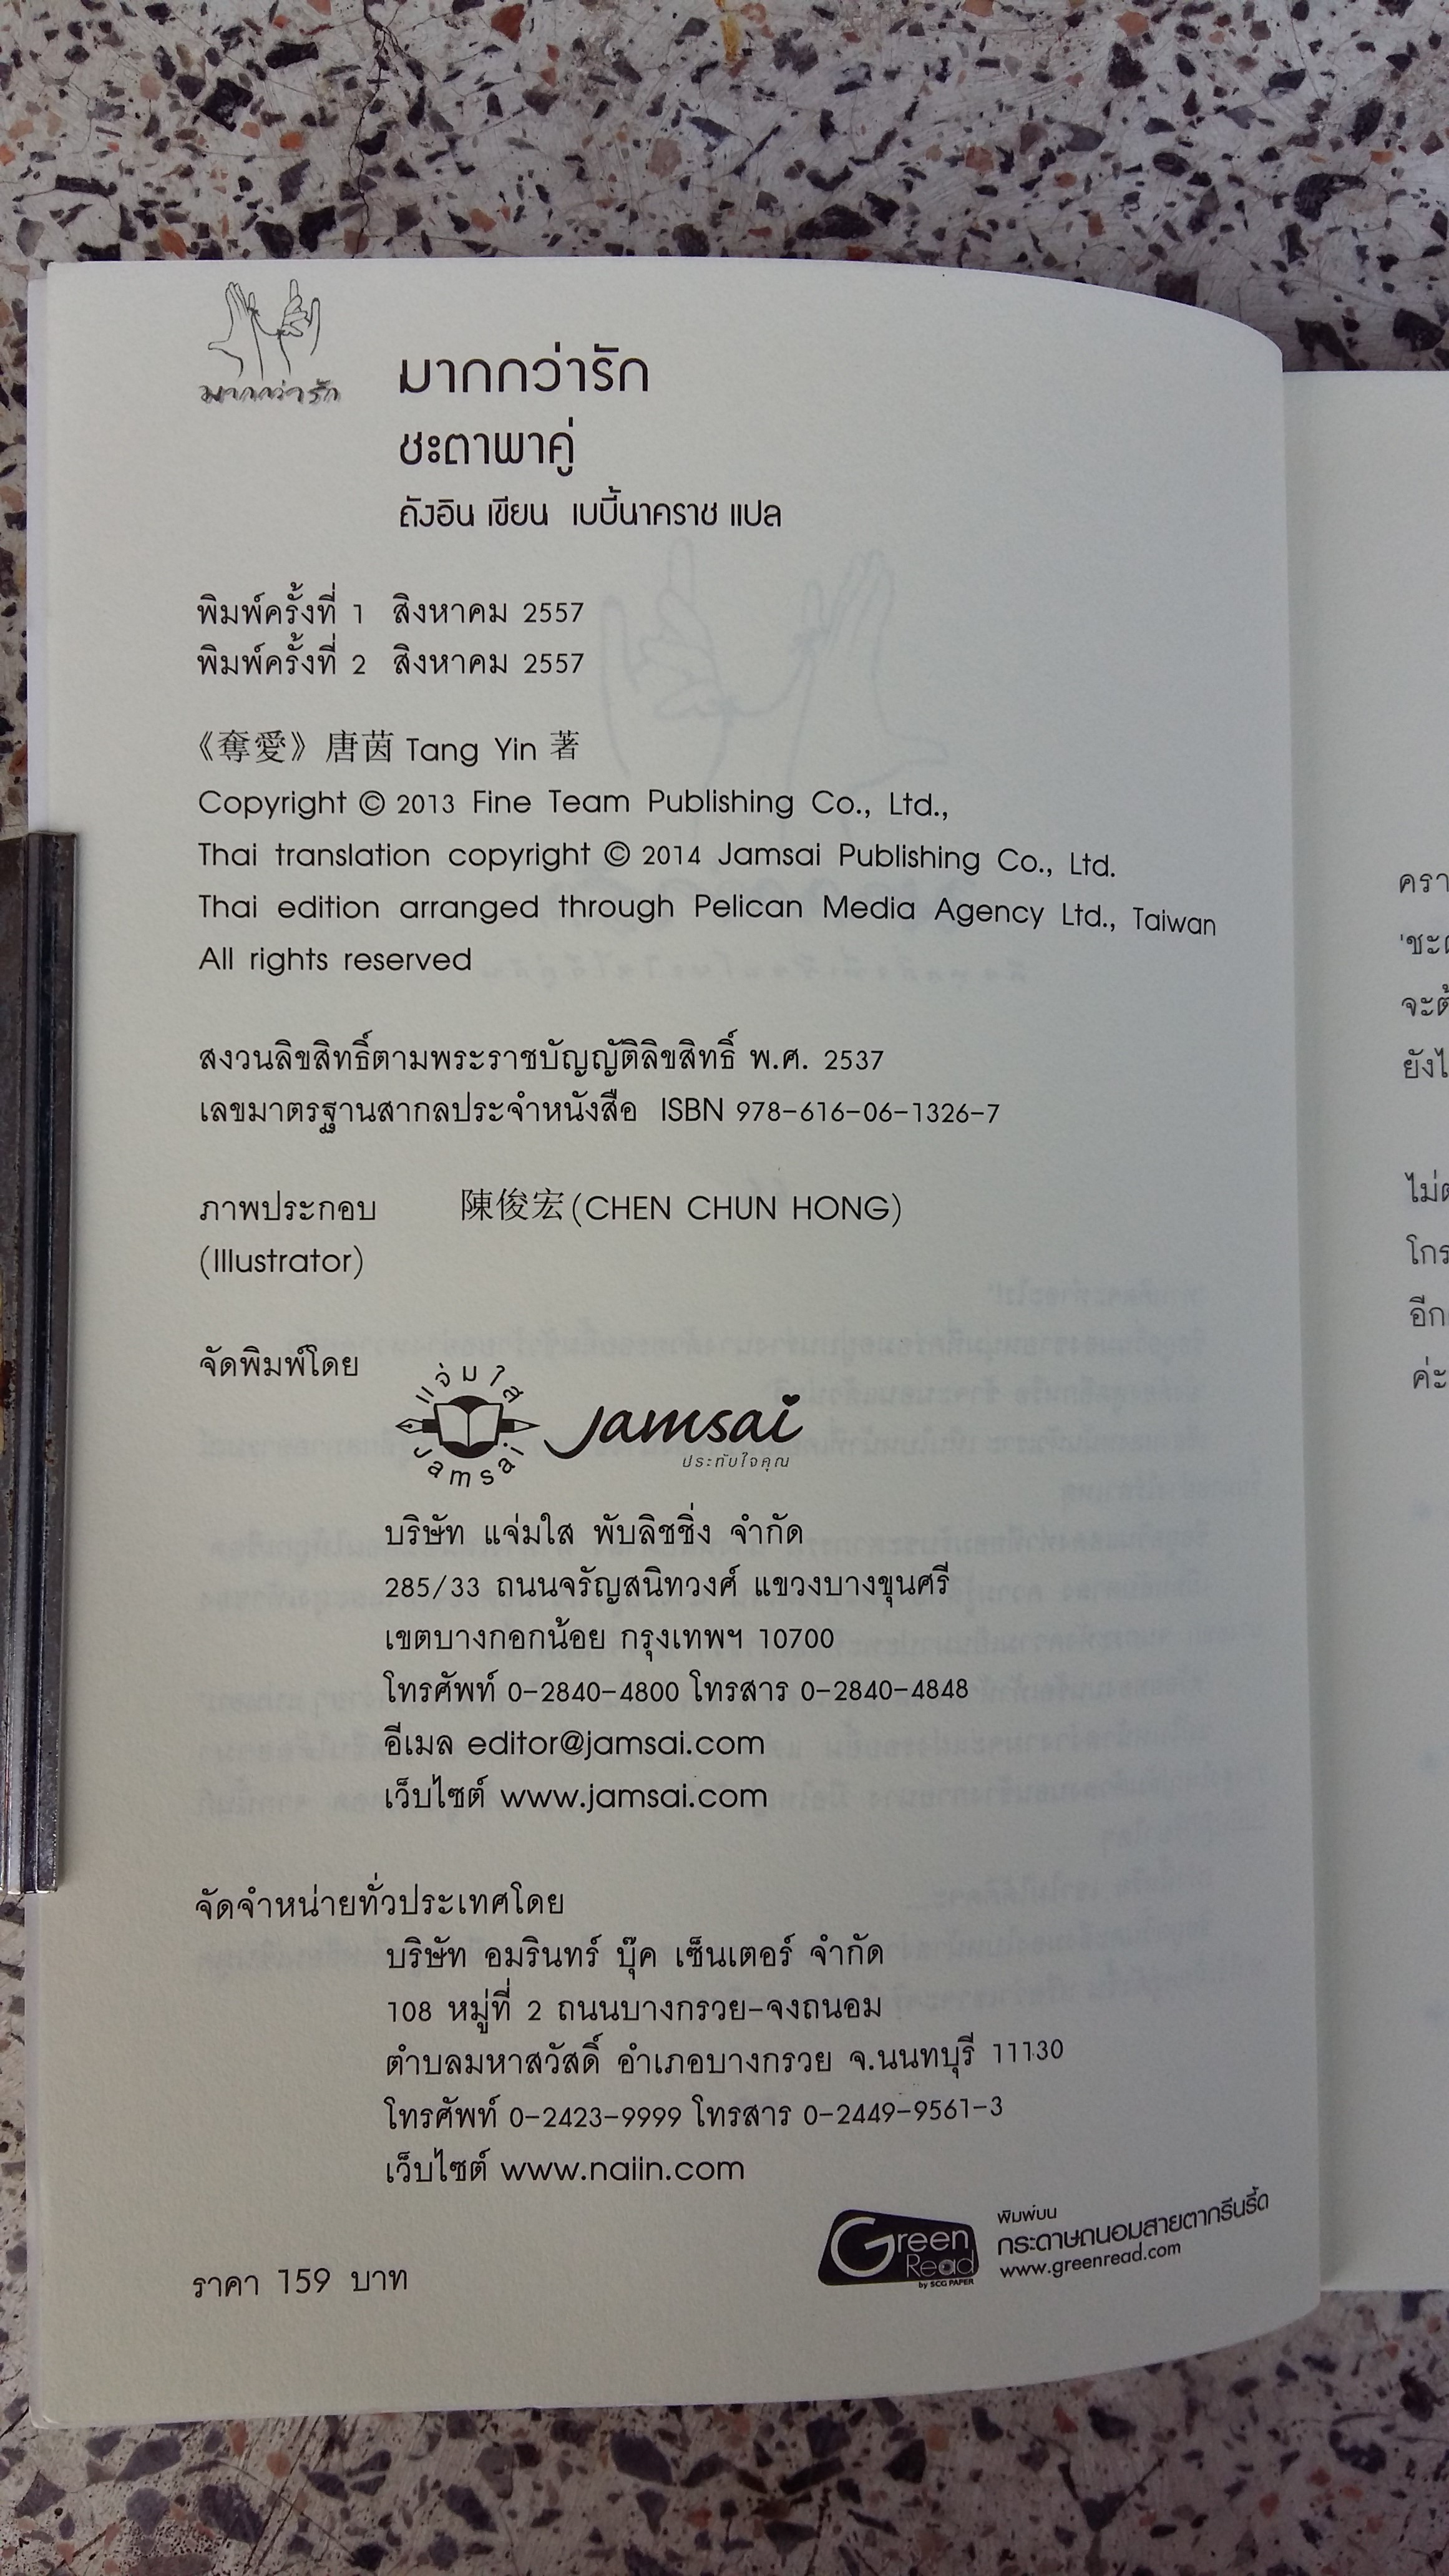 มากกว่ารัก
มากกว่ารัก
ชะตาพาคู่
ถังอิน เขียน เบบี้นาคราช แปล
พิมพ์ครั้งที่ 1 สิงหาคม 2557
พิมพ์ครั้งที่ 2 สิงหาคม 2557
《奪愛》唐茵 Tang Yin 著
Copyright © 2013 Fine Team Publishing Co., Ltd.,
Thai translation copyright © 2014 Jamsai Publishing Co., Ltd.
Thai edition arranged through Pelican Media Agency Ltd., Taiwan
All rights reserved
สงวนลิขสิทธิ์ตามพระราชบัญญัติลิขสิทธิ์ พ.ศ. 2537
เลขมาตรฐานสากลประจำหนังสือ ISBN 978-616-06-1326-7
ภาพประกอบ 陳俊宏(CHEN CHUN HONG)
(Illustrator)
จัดพิมพ์โดย
แจ่มใส
Jamsai
Jamsai
ประทับใจคุณ
บริษัท แจ่มใส พับลิชชิ่ง จำกัด
285/33 ถนนจรัญสนิทวงศ์ แขวงบางขุนศรี
เขตบางกอกน้อย กรุงเทพฯ 10700
โทรศัพท์ 0-2840-4800 โทรสาร 0-2840-4848
อีเมล editor@jamsai.com
เว็บไซต์ www.jamsai.com
จัดจำหน่ายทั่วประเทศโดย
บริษัท อมรินทร์ บุ๊ค เซ็นเตอร์ จำกัด
108 หมู่ที่ 2 ถนนบางกรวย-จงถนอม
ตำบลมหาสวัสดิ์ อำเภอบางกรวย จ.นนทบุรี 11130
โทรศัพท์ 0-2423-9999 โทรสาร 0-2449-9561-3
เว็บไซต์ www.naiin.com
ราคา 159 บาท
Green
Read
by SCG PAPER
พิมพ์บน
กระดาษถนอมสายตากรีนรี้ด
www.greenread.com